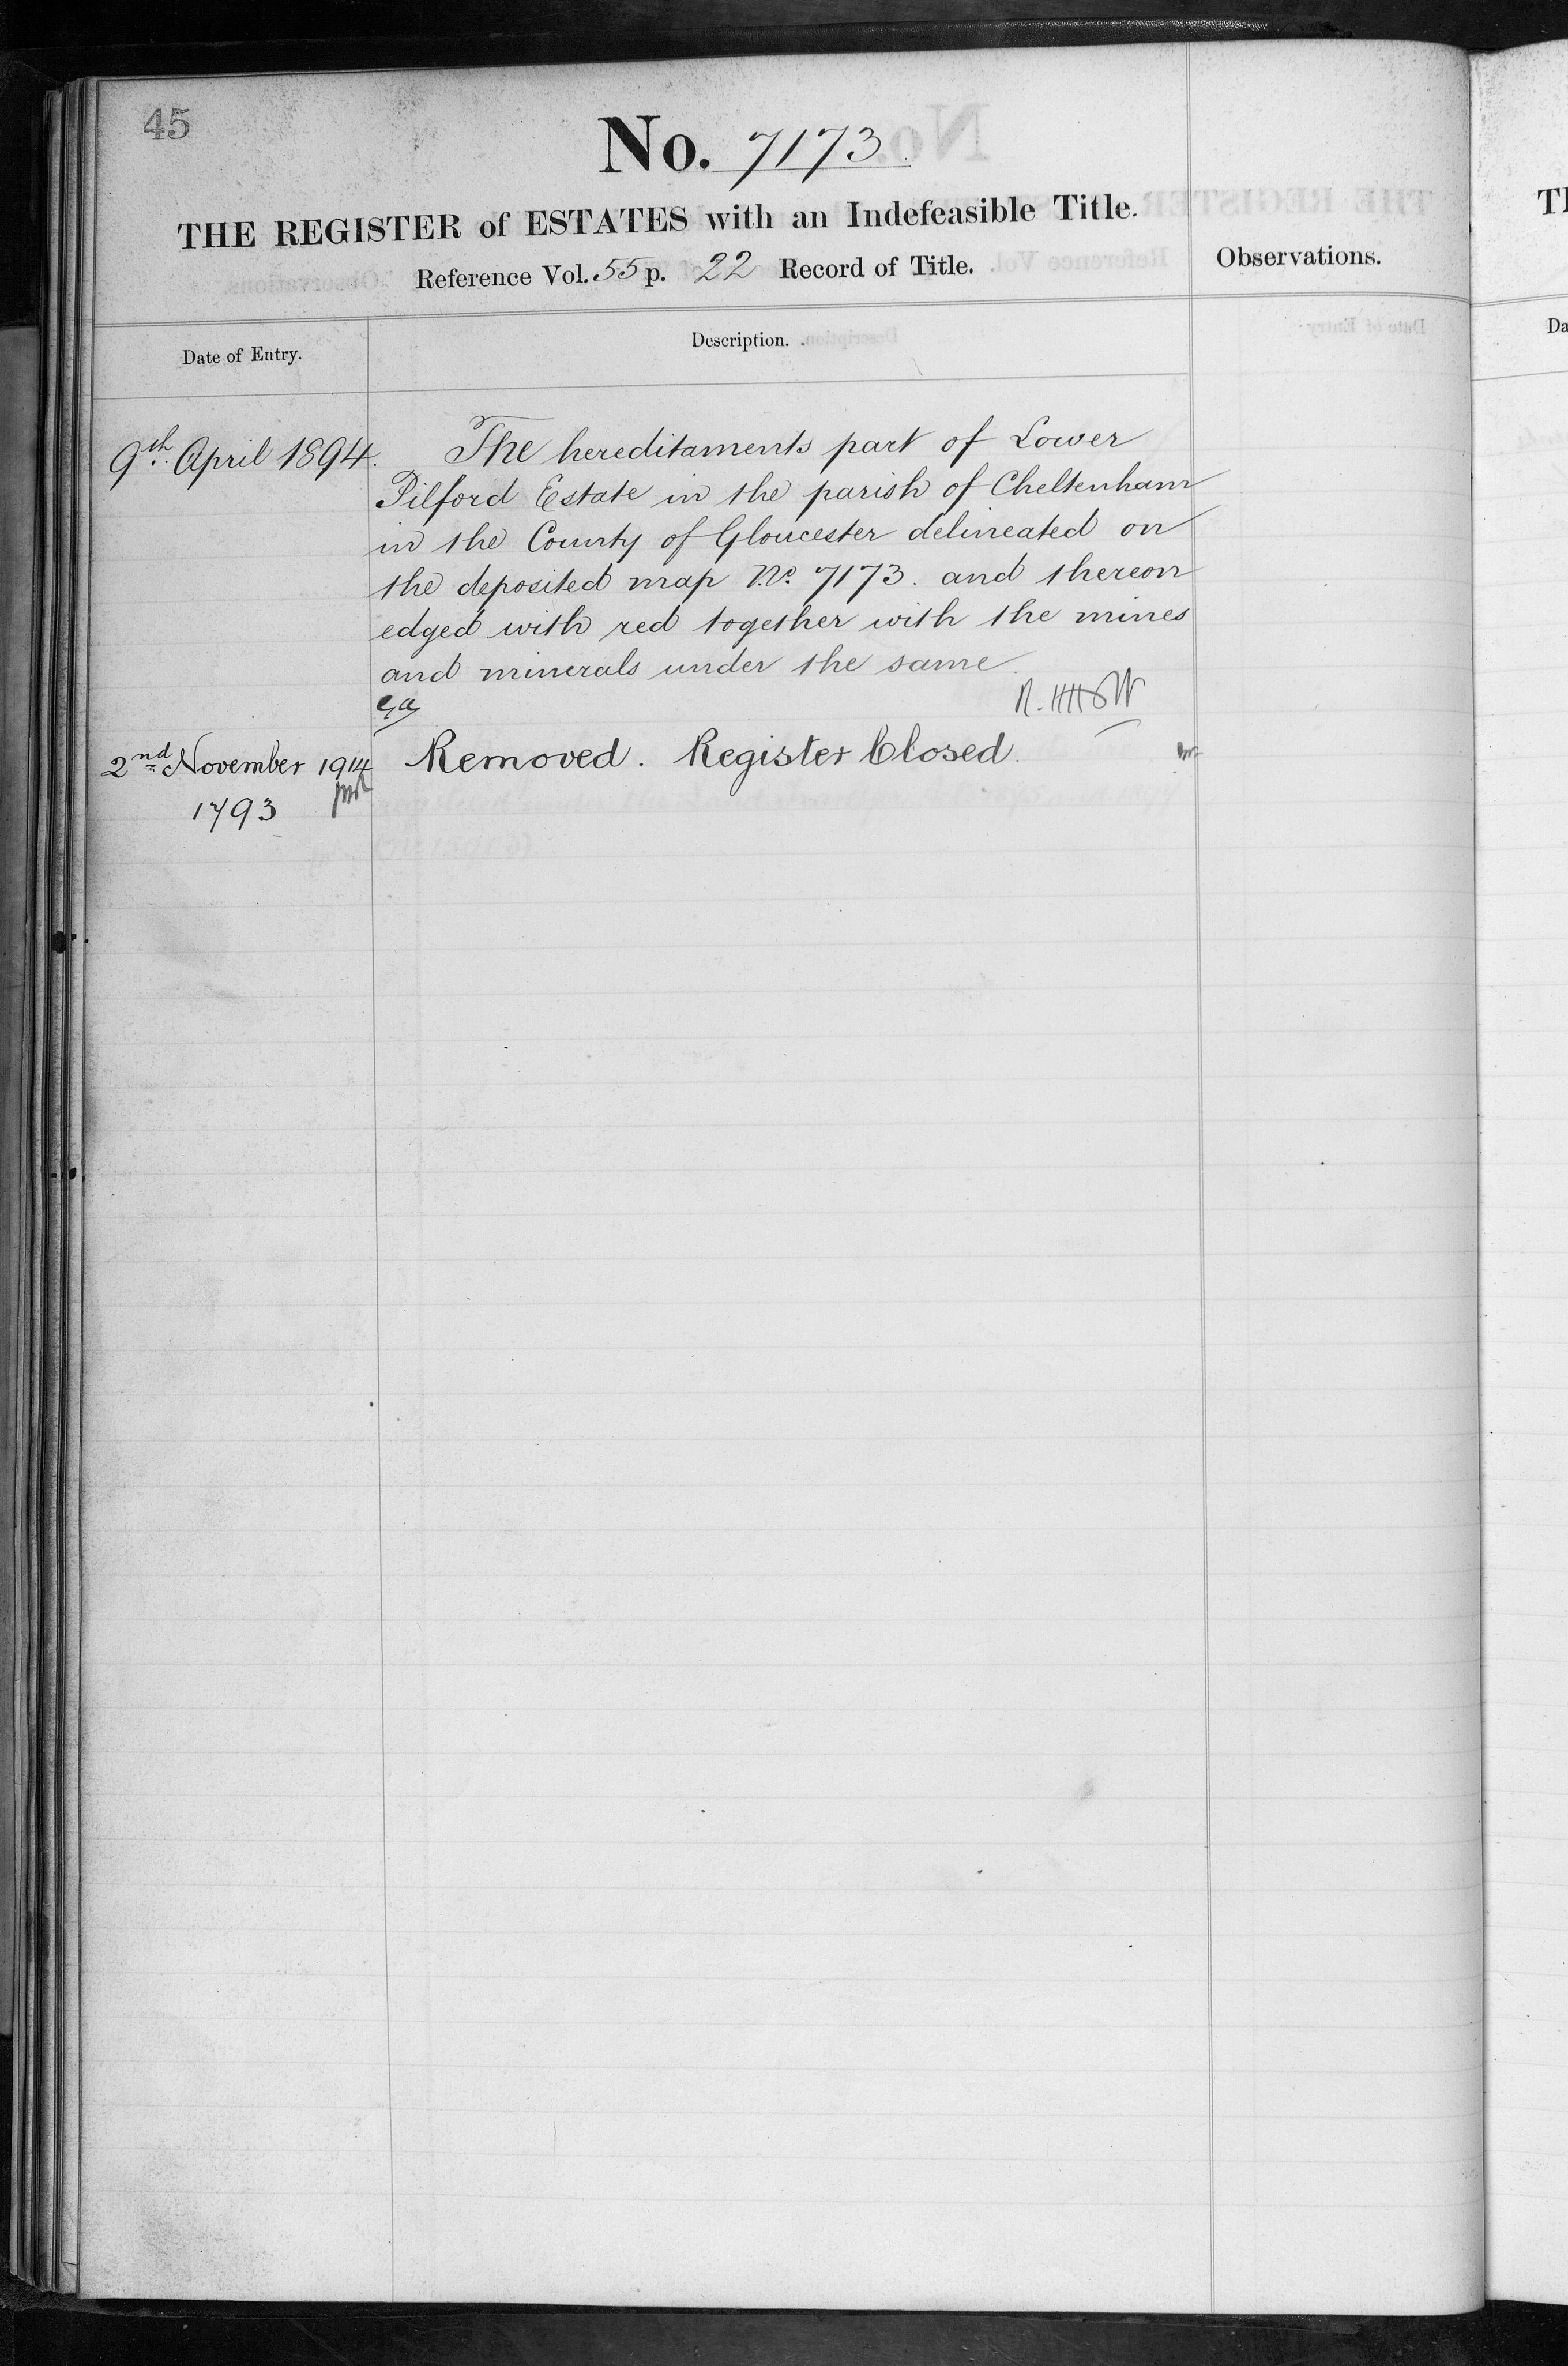 45
No. 7173.
THE REGISTER of ESTATES with an Indefeasible Title.
Reference Vol. 55 p. 22 Record of Title.
Observations.
Date of Entry.
Description.
9th April 1894.
The hereditaments part of Lower
Pilford Estate in the parish of Cheltenham
in the County of Gloucester delineated on
the deposited map No. 7173. and thereon
edged with red together with the mines
and minerals under the same.
2nd November 1914
Removed. Register Closed.
1793
Da